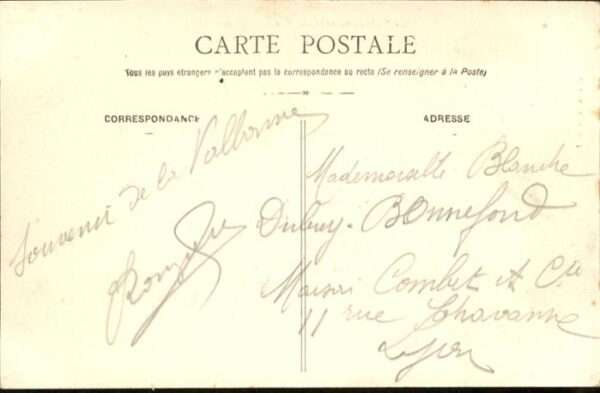 CARTE POSTALE
Tous les pays étrangers n'acceptent pas la correspondance au recto (Se renseigner à la Poste)
CORRESPONDANCE
Souvenir de la Valbonne
ADRESSE
Mademoiselle Blanche
Bonnefond
Maison Combet et Cie
11 rue Chavanne
Lyon